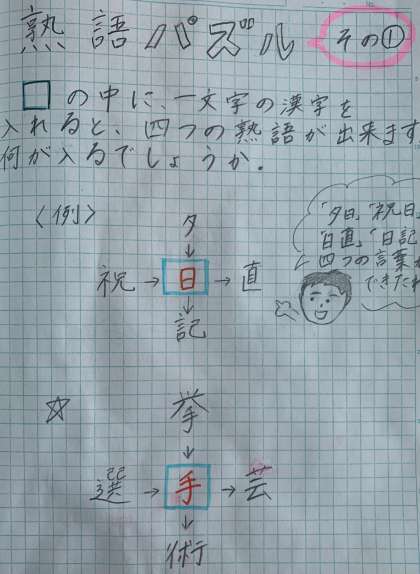 熟語パズル
その①
□の中に、一文字の漢字を
入れると、四つの熟語が出来ます
何が入るでしょうか.
〈例〉
夕
↓
祝→日→直
↓
記
「夕日」「祝日
「日直」「日記
四つの言葉
できた
☆
挙
↓
選→手→芸
↓
術